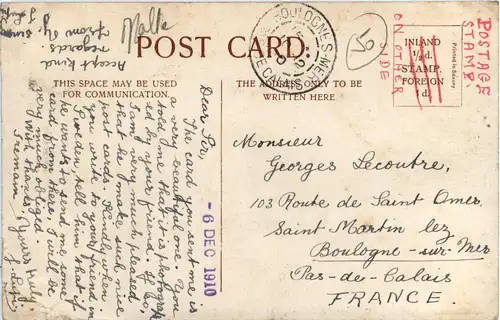 Malte
POST CARD.
THIS SPACE MAY BE USED
FOR COMMUNICATION.
THE ADDRESS ONLY TO BE
WRITTEN HERE
BOULOGNE-S-MER
DE CALAIS
50
INLAND
½d.
STAMP.
FOREIGN
1d.
POSTAGE
STAMP
ON OTHER
SIDE
Accept kind
regards
from
Dear Sir,
The card you sent me is
a very beautiful one. You
told me that it is photograph
ed by your friend. If so
I am very much pleased
that he make such nice
post cards. Kindly when
you write to your friend in
Sweden, tell him that if
he wants to send me some
card from there I will be
very much obliged.
With thanks, Yours truly,
-6 DEC 1910
Monsieur
Georges Lecoutre,
103 Route de Saint Omer
Saint Martin lez
Boulogne-sur-Mer
Pas-de-Calais
FRANCE.